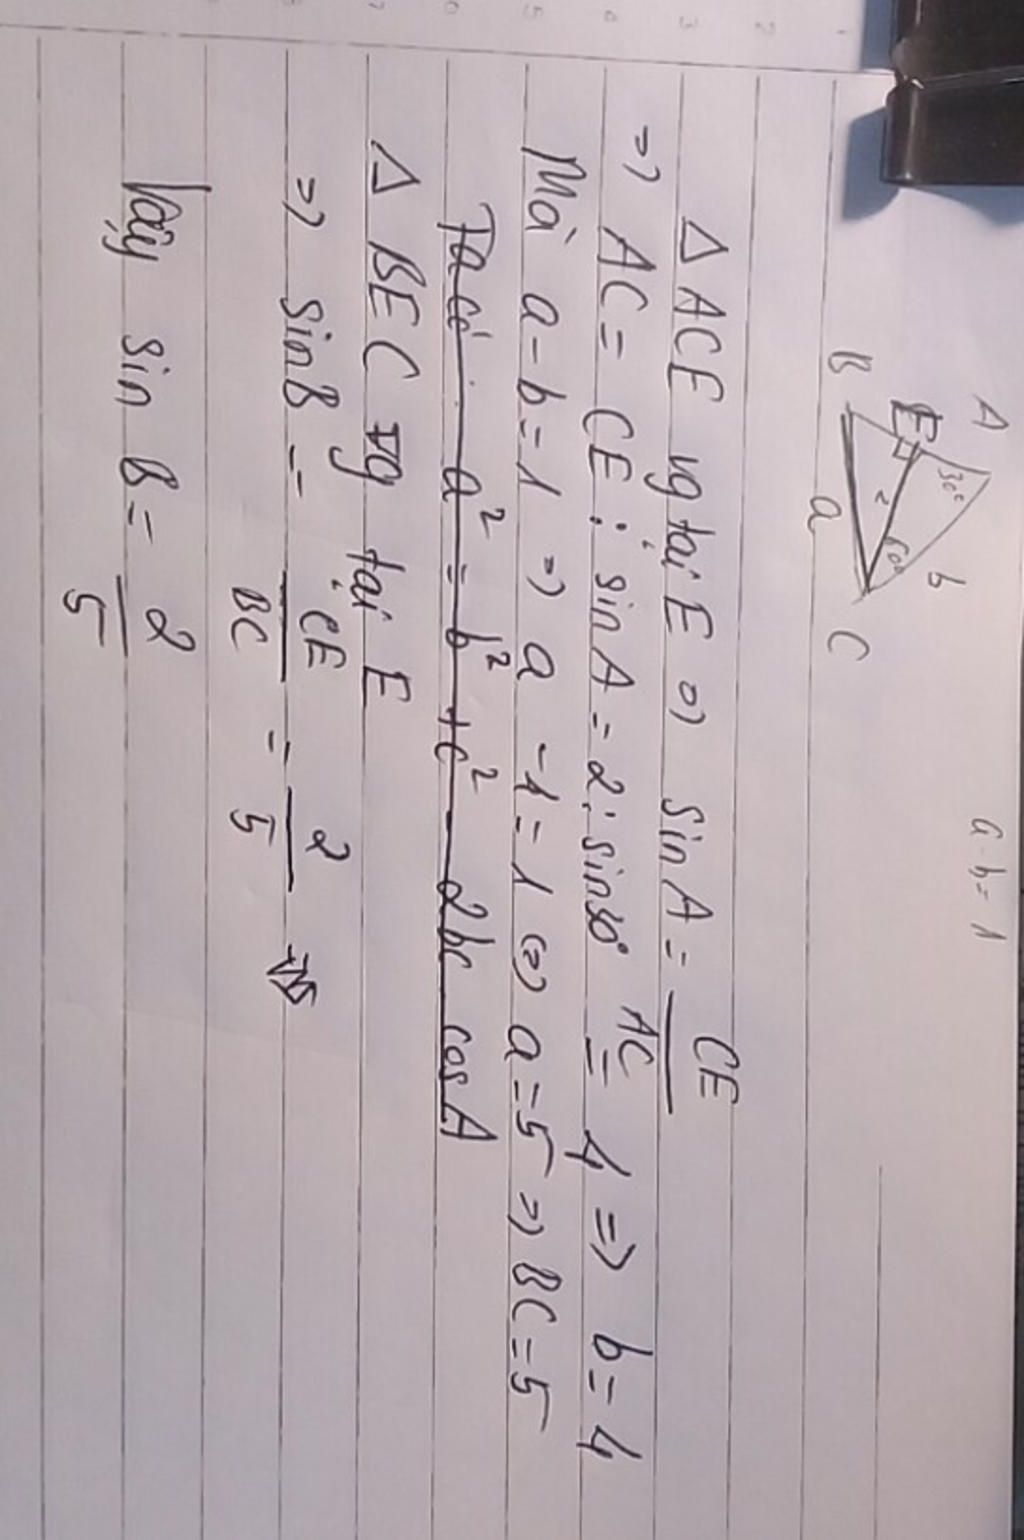 a - b = 1
A
30°
E
B
2
60°
b
a
C
Δ ACE vg tại E => sin A = CE / AC
=> AC = CE : sin A = 2 : sin30° = 4 => b = 4
Mà a - b = 1 => a - 1 = 1 <=> a = 5 => BC = 5
Ta có: a² = b² + c² - 2bc cos A
Δ BEC vg tại E
=> sin B = CE / BC = 2 / 5
Vậy sin B = 2 / 5